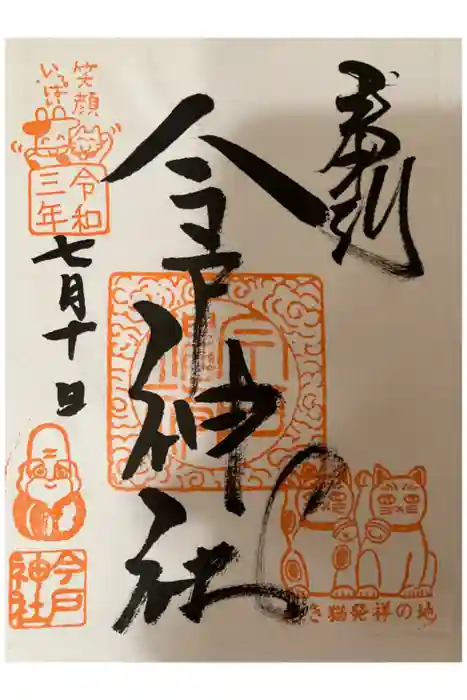 奉拝
今戸神社
笑顔
いっぱい
令和
三年
七月十日
今戸
神社
き猫発祥の地